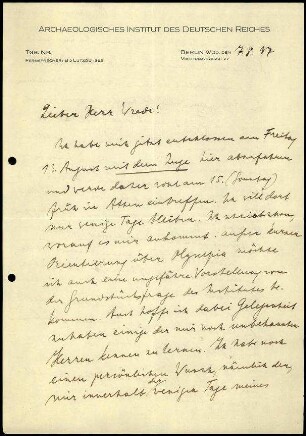 ARCHAEOLOGISCHES INSTITUT DES DEUTSCHEN REICHES
BERLIN W50, DEN 7.8.37
Lieber Herr Wrede!
Ich habe mich jetzt entschlossen am Freitag
13. August mit dem Zuge hier abzufahren
und werde daher wohl am 15. (Sonntag)
früh in Athen eintreffen. Ich will dort
nur wenige Tage bleiben. Ich
worauf es mir ankommt. ausser einer
Orientierung über Olympia möchte
ich auch eine ungefähre Vorstellung von
der Grundstücksfrage des Institutes be
kommen. Auch hoffe ich dabei Gelegenheit
zu haben einige der mir noch unbekannten
Herren kennen zu lernen. Ich habe noch
einen persönlichen Wunsch nämlich den,
mir innerhalb der wenigen Tage meines